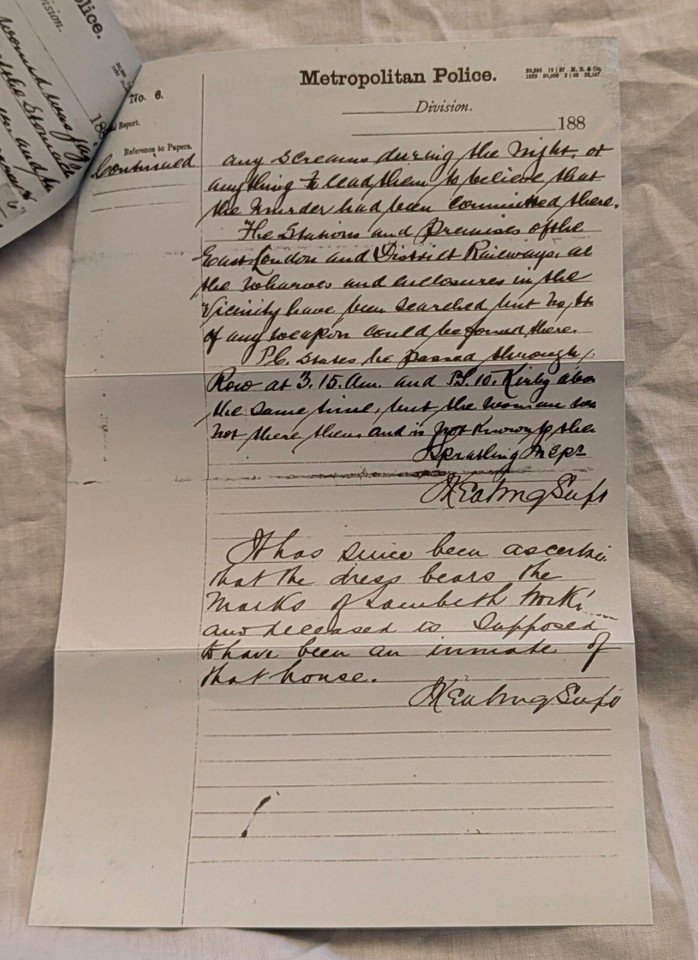 Metropolitan Police.
No. 6.
Division.
188
Report.
Reference to Papers.
Continued
any screams during the night, or
anything to lead them to believe that
the murder had been committed there.
The Stations and Premises of the
East London and District Railways, al
the wharves and enclosures in the
Vicinity have been searched but no
of any weapon could be found there.
P.C. States he passed through
Row at 3.15. am. and P.S. 10. Kirby abou
the same time, but the woman
not there then and is not known to the
Spratling Inspr
Keating Supt
It has since been
that the dress bears the
Marks of Lambeth
and deceased is supposed
to have been an inmate of
that house.
Keating Supt
lice.
ision.
188